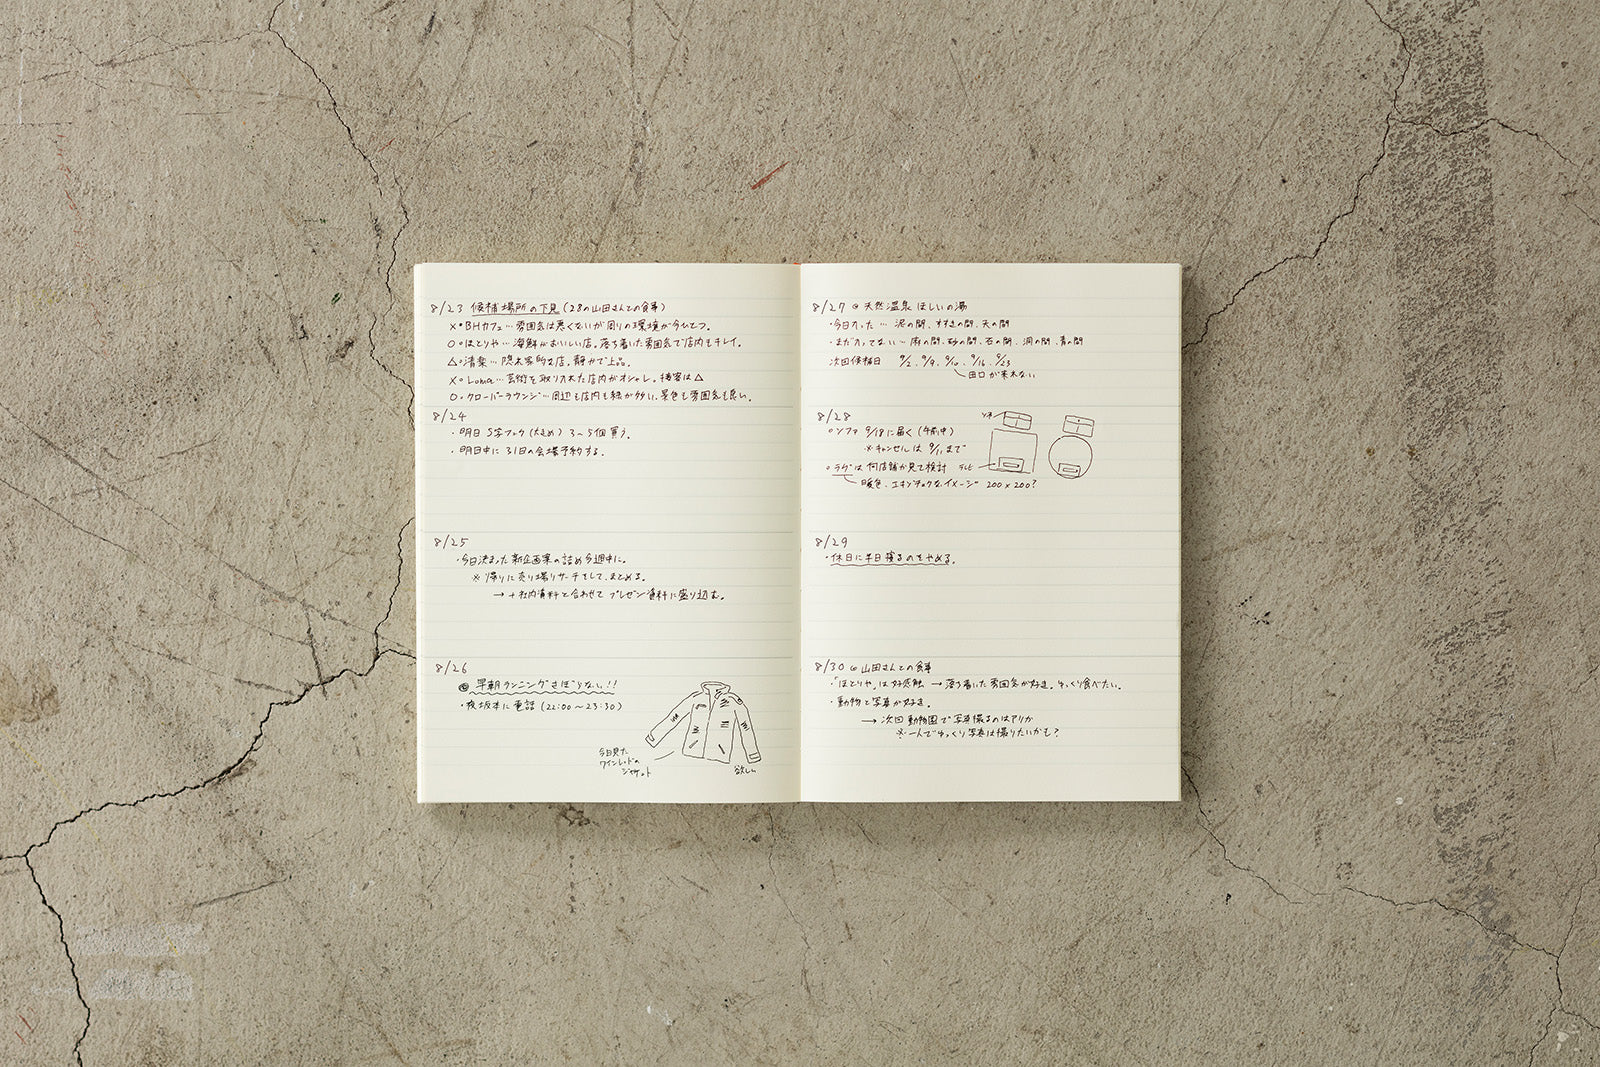 8/23 候補場所の下見 (28の山田さんとの食事)
×・BHカフェ… 雰囲気は悪くないが周りの環境が今ひとつ。
○・ほとりや… 海鮮がおいしい店。落ち着いた雰囲気で店内もキレイ。
△・清楽… 隠れ家的な店。静かで上品。
×・Loma… 芸術を取り入れた店内がオシャレ。接客は△
○・クローバーラウンジ… 周辺も店内も緑が多い、景色も雰囲気も良い。
8/24
・明日 S字フック (大きめ) 3〜5個買う。
・明日中に 31日の会場予約する。
8/25
・今日決まった新企画案の詰め今週中に。
※ 帰りに売り場リサーチをして、まとめる。
→ +社内資料と合わせて プレゼン資料に盛り込む。
8/26
早朝ランニングさぼらない!!
・夜坂本に電話 (22:00〜23:30)
今日見た
ワインレッドの
ジャケット
欲しい
8/27 @ 天然温泉 ほしいの湯
・今日入った… 泥の間、すすきの間、天の間
・まだ入ってない… 雨の間、砂の間、石の間、洞の間、青の間
次回候補日 9/2、9/9、9/10、9/16、9/23
田口が来れない
8/28
○ソファ 9/18に届く (午前中)
※キャンセルは 9/11まで
○ラグは 何店舗か見て検討
暖色、エキゾチックなイメージ 200×200?
ソファ
テレビ
8/29
・休日に半日寝るのをやめる。
8/30 @山田さんとの食事
・「ほとりや」は好感触 → 落ち着いた雰囲気が好き。ゆっくり食べたい。
・動物と写真が好き。
→ 次回 動物園で写真撮るのはアリか
※ 一人でゆっくり写真は撮りたいかも?